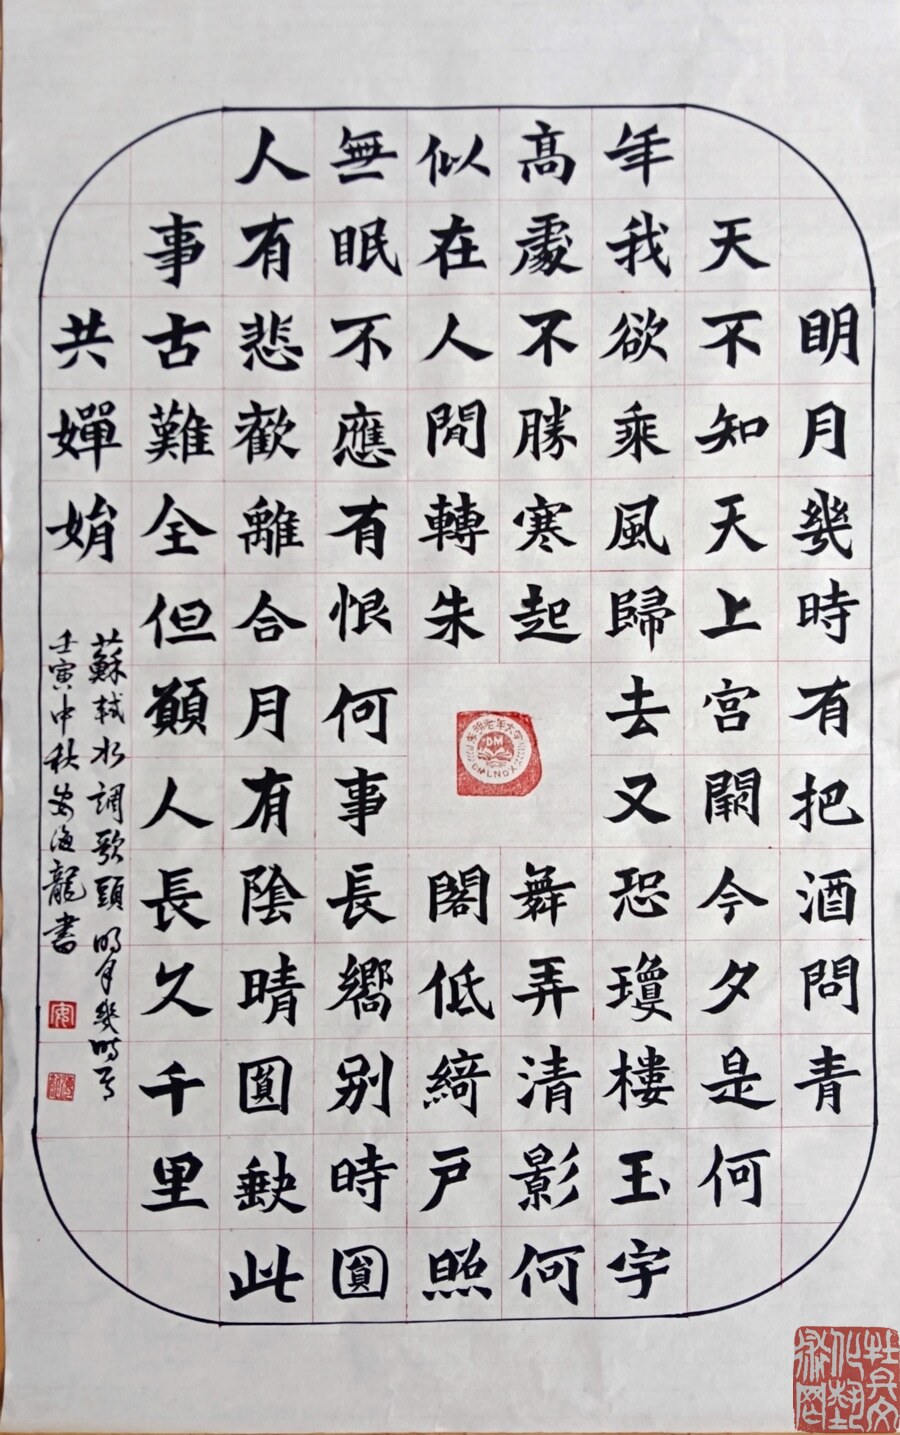 明月幾時有把酒問青
天不知天上宮闕今夕是何
年我欲乘風歸去又恐瓊樓玉宇
高處不勝寒起舞弄清影何
似在人間轉朱閣低綺戶照
無眠不應有恨何事長嚮別時圓
人有悲歡離合月有陰晴圓缺此
事古難全但願人長久千里
共嬋娟
蘇軾水調歌頭明月幾時有
壬寅中秋安海龍書